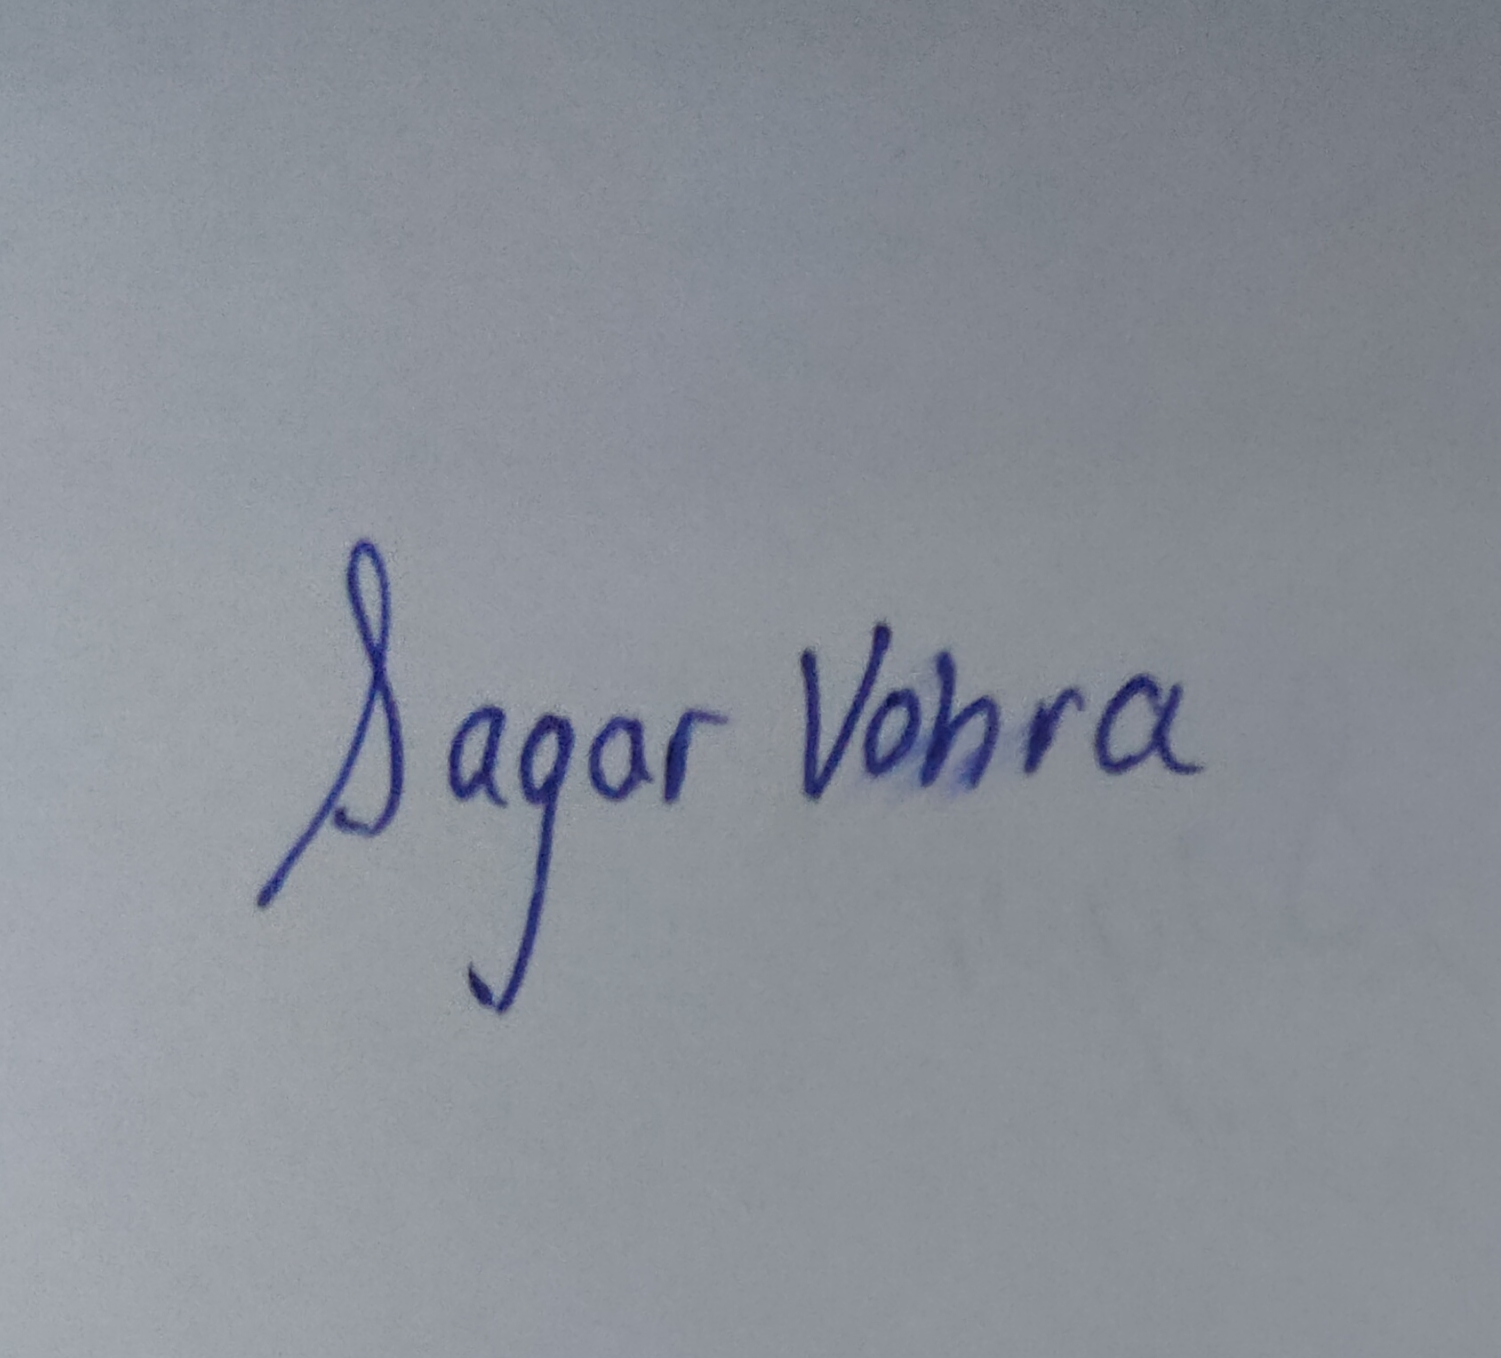 Sagar Vohra